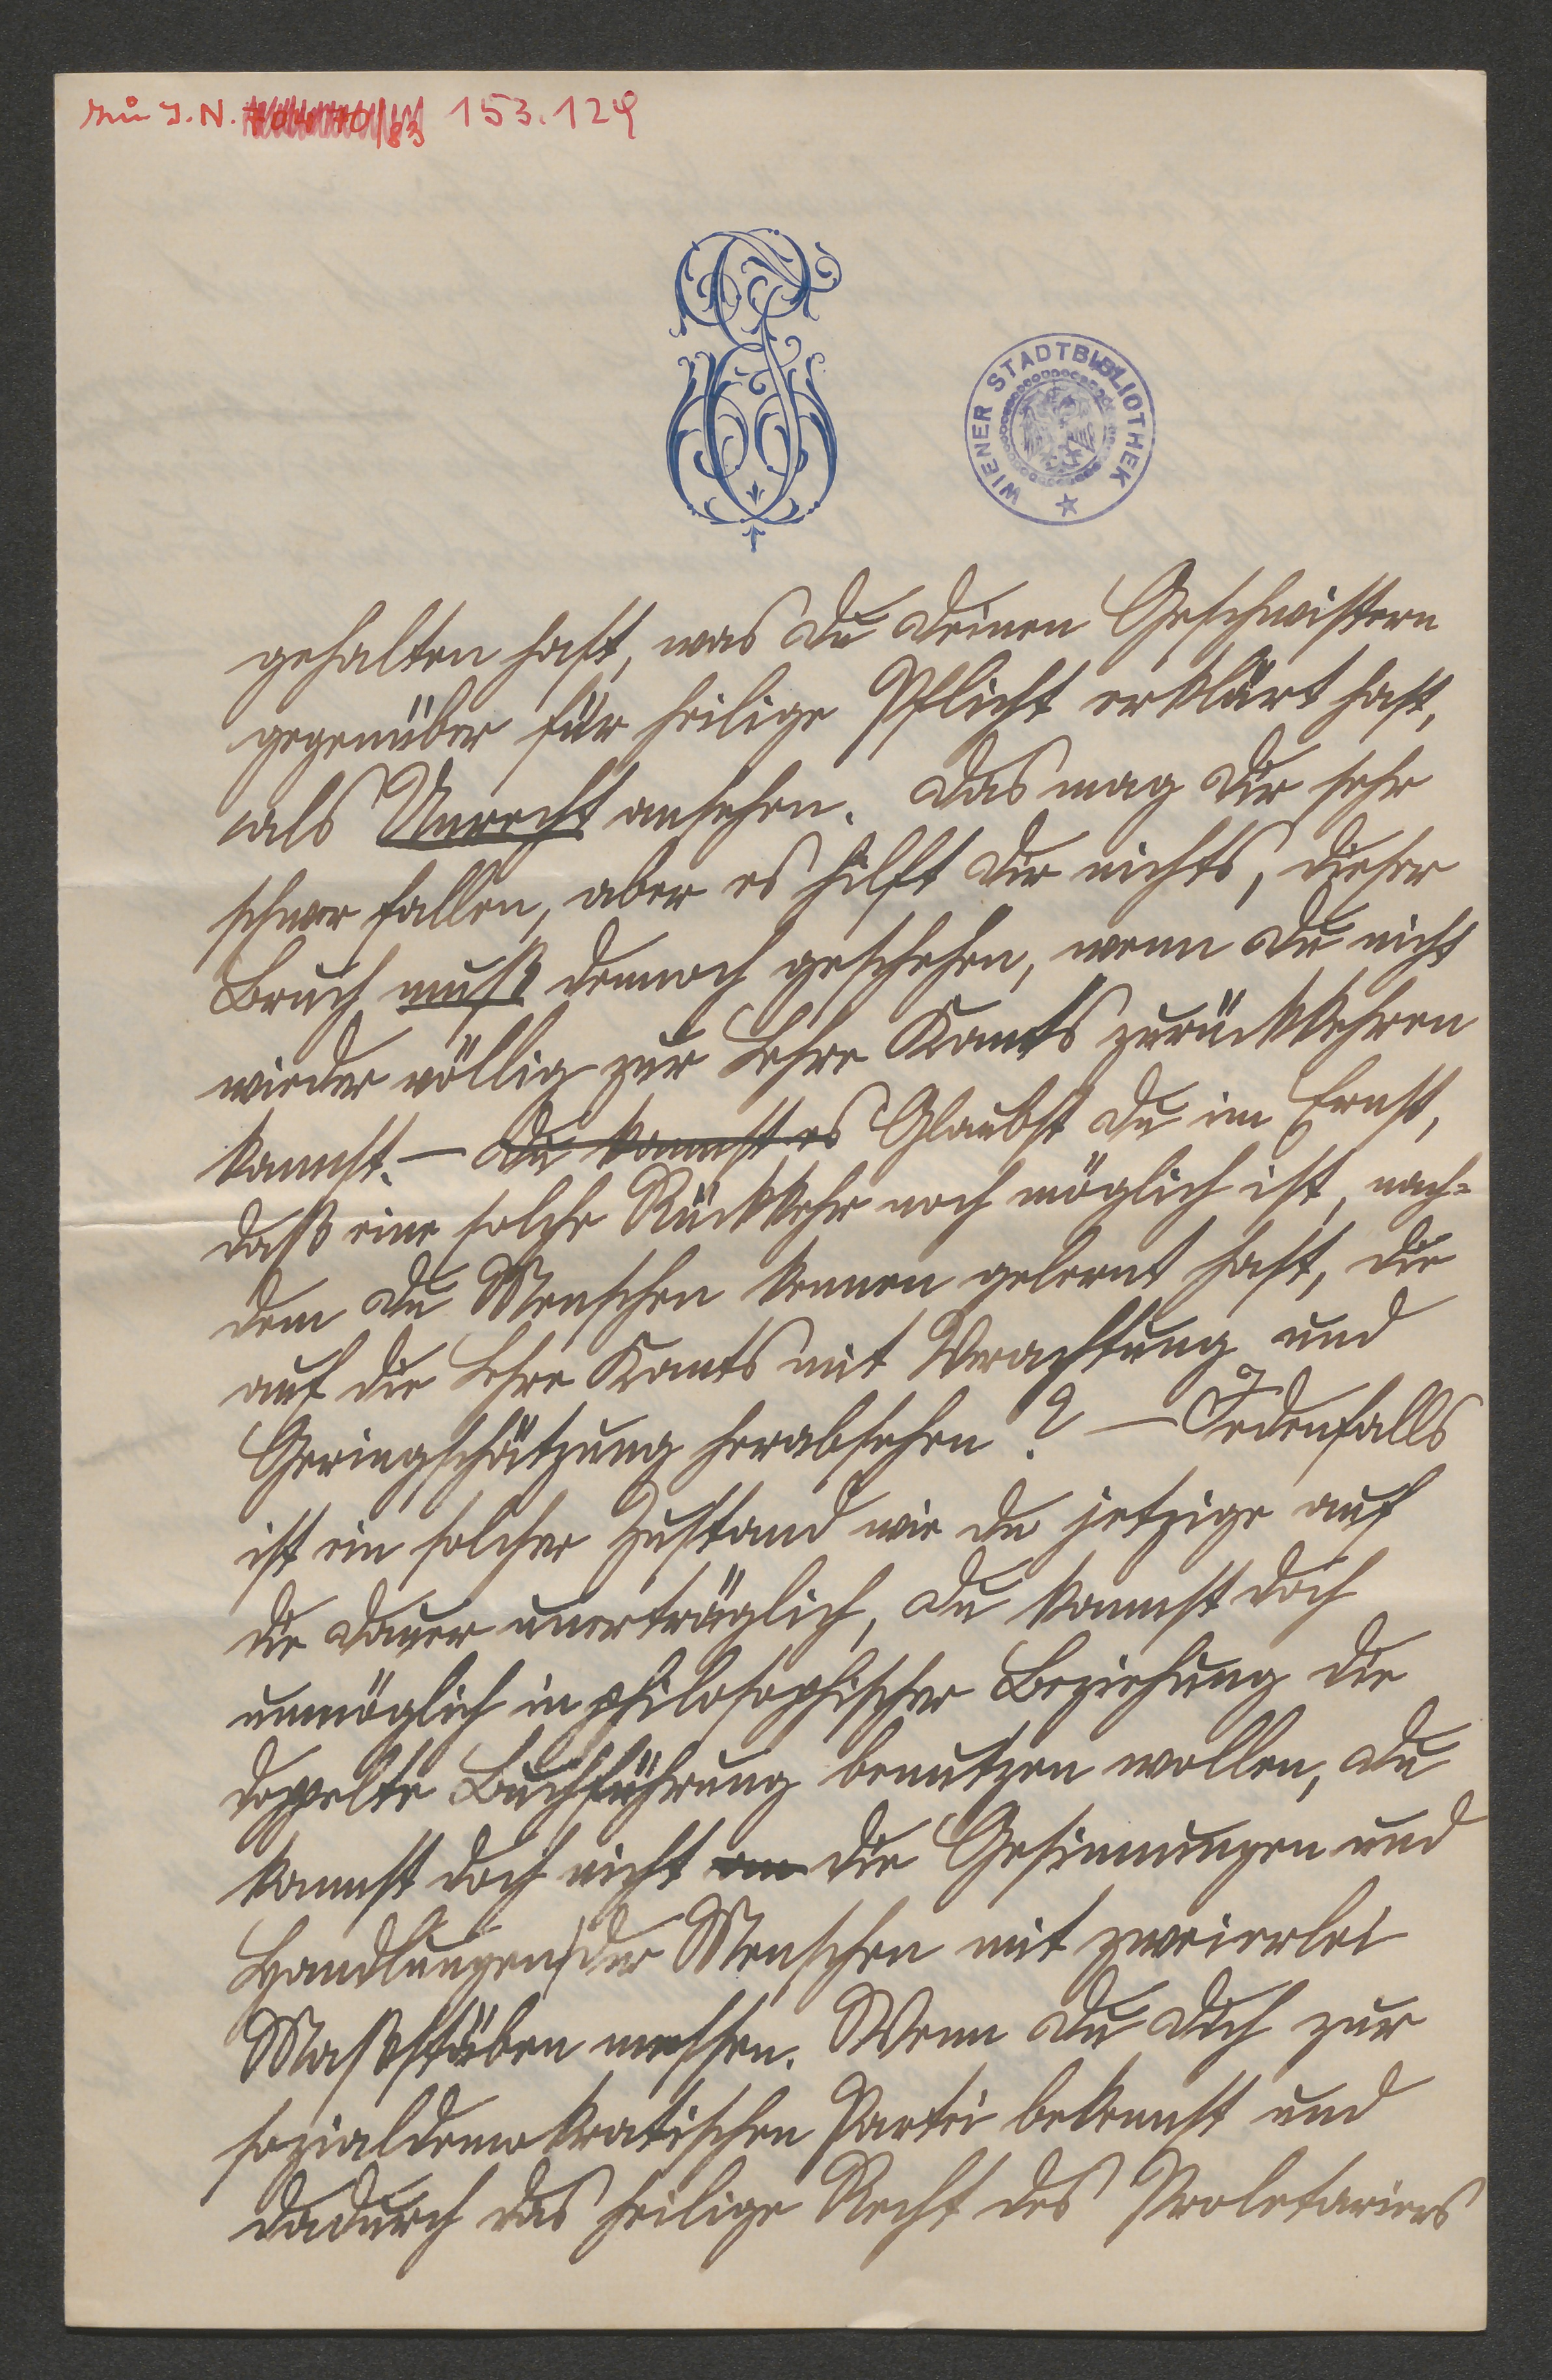 zu J.N. 153.129
WIENER STADTBIBLIOTHEK
gehalten hast, was Du Deinen Geschwistern
gegenüber für heilige Pflicht erklärt hast,
als Unrecht ansehen. Das mag Dir sehr
schwer fallen, aber es hilft Dir nichts, dieser
Bruch muß dennoch geschehen, wenn Du nicht
wieder völlig zur Lehre Kants zurückkehren
kannst. – Du kannst es Glaubst Du im Ernst,
daß eine solche Rückkehr noch möglich ist, nach=
dem Du Menschen kennen gelernt hast, die
auf die Lehre Kants mit Verachtung und
Geringschätzung herabsehen? – Jedenfalls
ist ein solcher Zustand wie der jetzige auf
die Dauer unerträglich, Du kannst doch
unmöglich in philosophischer Beziehung die
doppelte Buchführung benutzen wollen, Du
kannst doch nicht an die Gesinnungen und
Handlungen der Menschen mit zweierlei
Maßstäben messen. Wenn Du Dich zur
sozialdemokratischen Partei bekennst und
dadurch das heilige Recht des Proletariers